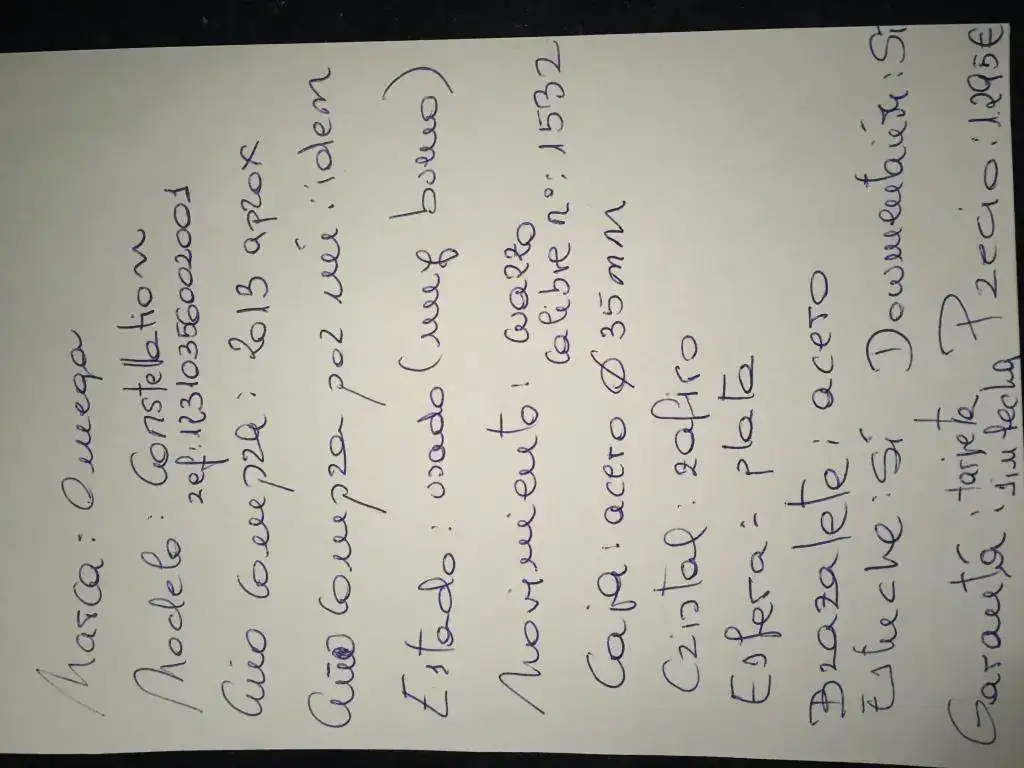 Marca: Omega
Modelo: Constellation
ref: 12310356002001
Año compra: 2013 aprox
Año compra por mí: idem
Estado: usado (muy bueno)
Movimiento: cuarzo
calibre nº: 1532
Caja: acero Ø 35mm
Cristal: zafiro
Esfera: plata
Brazalete: acero
Estuche: Sí Documentación: Sí
Garantía: tarjeta sin fecha Precio: 1.295€